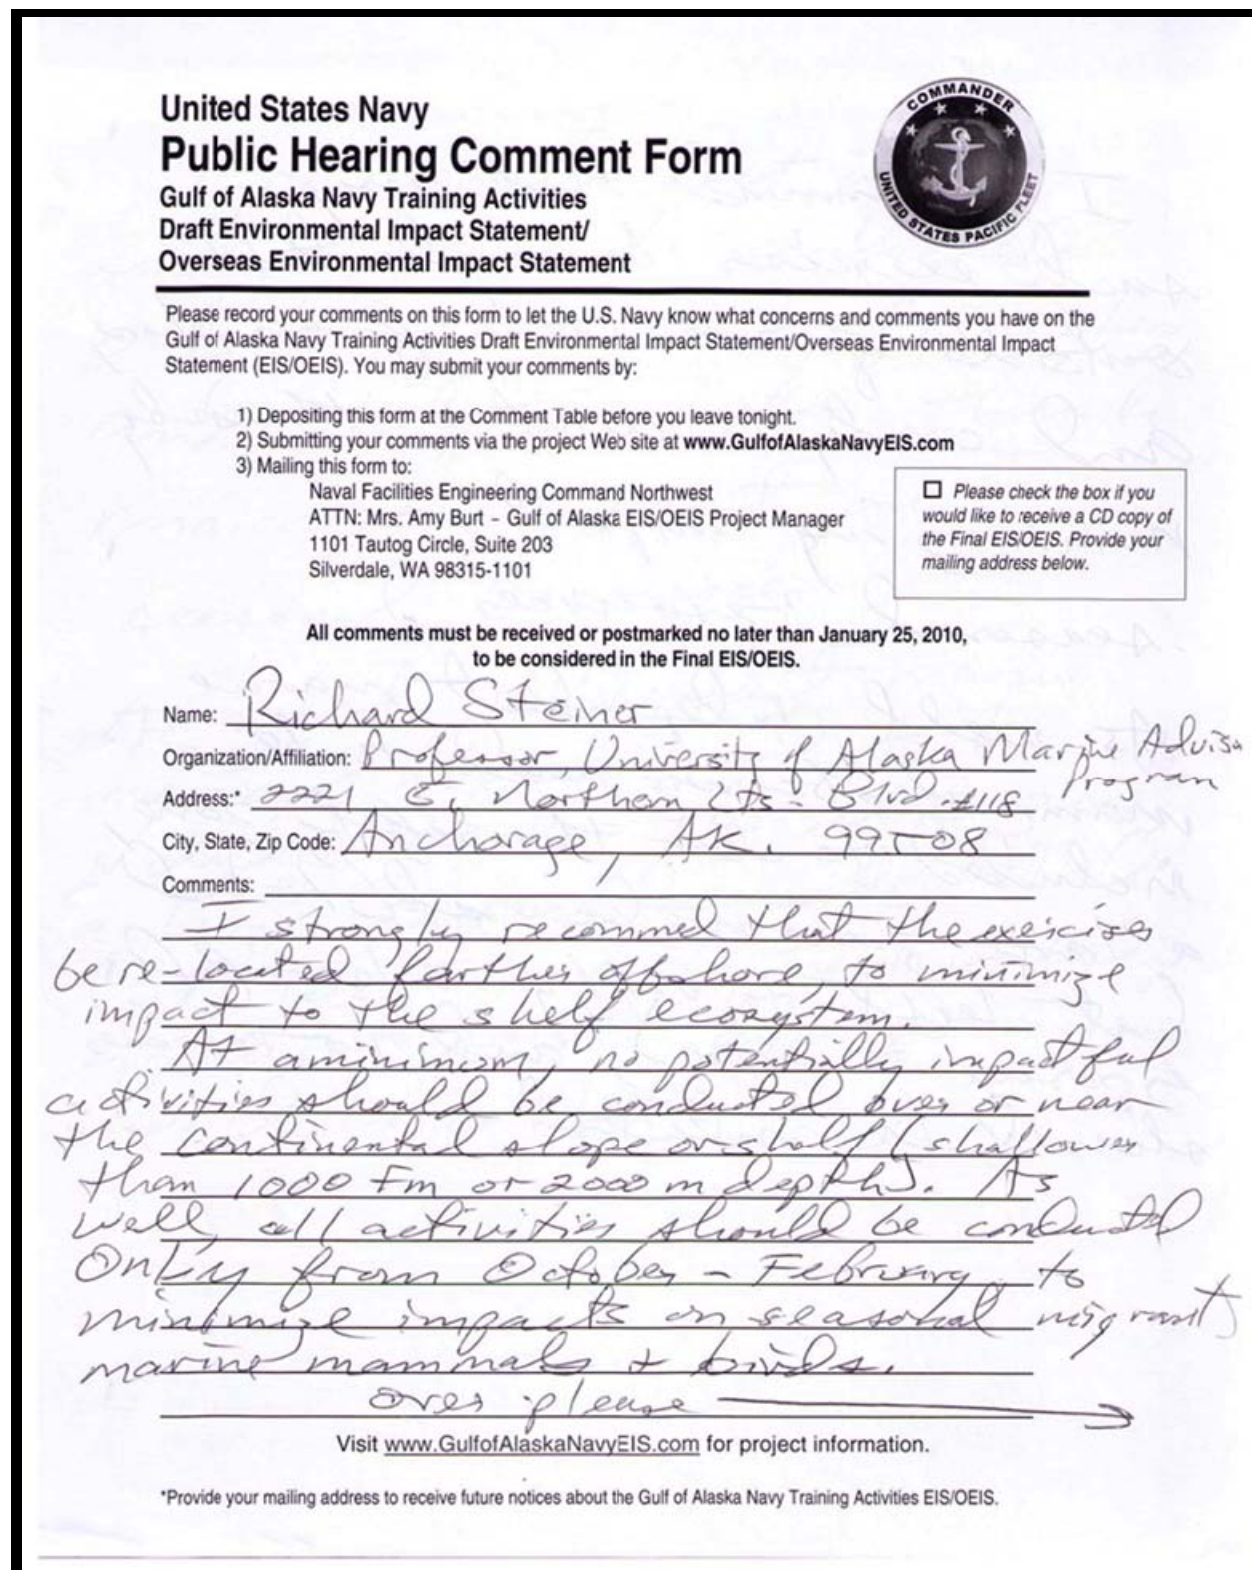 United States Navy
Public Hearing Comment Form
Gulf of Alaska Navy Training Activities
Draft Environmental Impact Statement/
Overseas Environmental Impact Statement
COMMANDER
UNITED STATES PACIFIC FLEET
Please record your comments on this form to let the U.S. Navy know what concerns and comments you have on the
Gulf of Alaska Navy Training Activities Draft Environmental Impact Statement/Overseas Environmental Impact
Statement (EIS/OEIS). You may submit your comments by:
1) Depositing this form at the Comment Table before you leave tonight.
2) Submitting your comments via the project Web site at www.GulfofAlaskaNavyEIS.com
3) Mailing this form to:
Naval Facilities Engineering Command Northwest
ATTN: Mrs. Amy Burt – Gulf of Alaska EIS/OEIS Project Manager
1101 Tautog Circle, Suite 203
Silverdale, WA 98315-1101
☐ Please check the box if you
would like to receive a CD copy of
the Final EIS/OEIS. Provide your
mailing address below.
All comments must be received or postmarked no later than January 25, 2010,
to be considered in the Final EIS/OEIS.
Name: Richard Steiner
Organization/Affiliation: Professor, University of Alaska Marine Adviso
Program
Address:* 2221 E. Northern Lts. Blvd. #118
City, State, Zip Code: Anchorage, AK. 99508
Comments:
I strongly recommed that the exercises
be re-located farther offshore, to minimize
impact to the shelf ecosystem.
At a minimum, no potentially impactful
activities should be conducted over or near
the continental slope or shelf (shallower
than 1000 Fm or 2000 m depth). As
well, all activities should be conducted
ONLy from October - February, to
minimize impacts on seasonal migrant
marine mammals + birds.
over please
Visit www.GulfofAlaskaNavyEIS.com for project information.
*Provide your mailing address to receive future notices about the Gulf of Alaska Navy Training Activities EIS/OEIS.